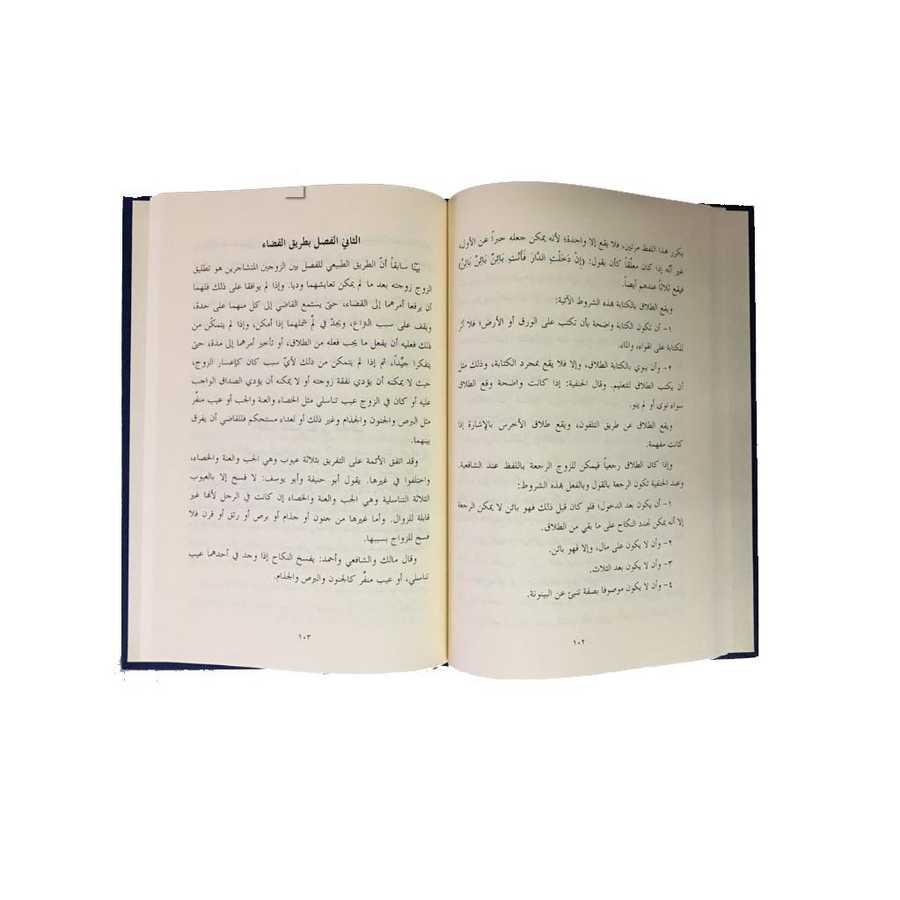 يكرر هذا اللفظ مرتين، فلا يقع إلا واحدة؛ لأنه يمكن جعله خبراً عن الأول،
غير أنّه إذا كان معلّقاً كأن يقول: (إنْ دَخَلْتِ الدَّارَ فَأَنْتِ بَائِنٌ بَائِنٌ بَائِنٌ)
فيقع ثلاثاً عندهم أيضاً.
ويقع الطلاق بالكتابة بهذه الشروط الآتية:
١- أن تكون الكتابة واضحة بأن تكتب على الورق أو الأرض؛ فلا أثر
للكتابة على الهواء، والماء.
٢- وأن ينوي بالكتابة الطلاق، وإلا فلا يقع بمجرد الكتابة، وذلك مثل
أن يكتب الطلاق للتعليم. وقال الحنفية: إذا كانت واضحة وقع الطلاق
سواء نوى أو لم ينو.
ويقع الطلاق عن طريق التلفون، ويقع طلاق الأخرس بالإشارة إذا
كانت مفهمة.
وإذا كان الطلاق رجعياً فيمكن للزوج الرجعة باللفظ عند الشافعية.
وعند الحنفية تكون الرجعة بالقول وبالفعل بهذه الشروط:
١- أن يكون بعد الدخول؛ فلو كان قبل ذلك فهو بائن لا يمكن الرجعة
إلا أنه يمكن تجدد النكاح على ما بقي من الطلاق.
٢- وأن لا يكون على مال، وإلا فهو بائن.
٣- وأن لا يكون بعد الثلاث.
٤- وأن لا يكون موصوفا بصفة تنبئ عن البينونة.
١٠٢
الثاني الفصل بطريق القضاء
بيّنّا سابقاً أنّ الطريق الطبيعي للفصل بين الزوجين المتشاجرين هو تطليق
الزوج زوجته بعد ما لم يمكن تعايشهما وديا. وإذا لم يوافقا على ذلك فلهما
أن يرفعا أمرهما إلى القضاء، حتى يستمع القاضي إلى كل منهما على حدة،
ويقف على سبب النزاع، ويجدّ في لمّ شملهما إذا أمكن، وإذا لم يتمكّن من
ذلك فعليه أن يفعل ما يجب فعله من الطلاق، أو تأخير أمرهما إلى مدة، حتى
يتفكرا جيّداً، ثم إذا لم يتمكن من ذلك لأيّ سبب كان كإعسار الزوج،
حيث لا يمكنه أن يؤدي نفقة زوجته أو لا يمكنه أن يؤدي الصداق الواجب
عليه أو كان في الزوج عيب تناسلي مثل الخصاء والعنة والجب أو عيب منفّر
مثل البرص والجنون والجذام وغير ذلك أو لعداء مستحكم فللقاضي أن يفرق
بينهما.
وقد اتفق الأئمة على التفريق بثلاثة عيوب وهي الجب والعنة والخصاء،
واختلفوا في غيرها. يقول أبو حنيفة وأبو يوسف: لا فسخ إلا بالعيوب
الثلاثة التناسلية وهي الجب والعنة والخصاء إن كانت في الرجل لأنها غير
قابلة للزوال. وأما غيرها من جنون أو جذام أو برص أو رتق أو قرن فلا
فسخ للزواج بسببها.
وقال مالك والشافعي وأحمد: يفسخ النكاح إذا وجد في أحدهما عيب
تناسلي، أو عيب منفّر كالجنون والبرص والجذام.
١٠٣